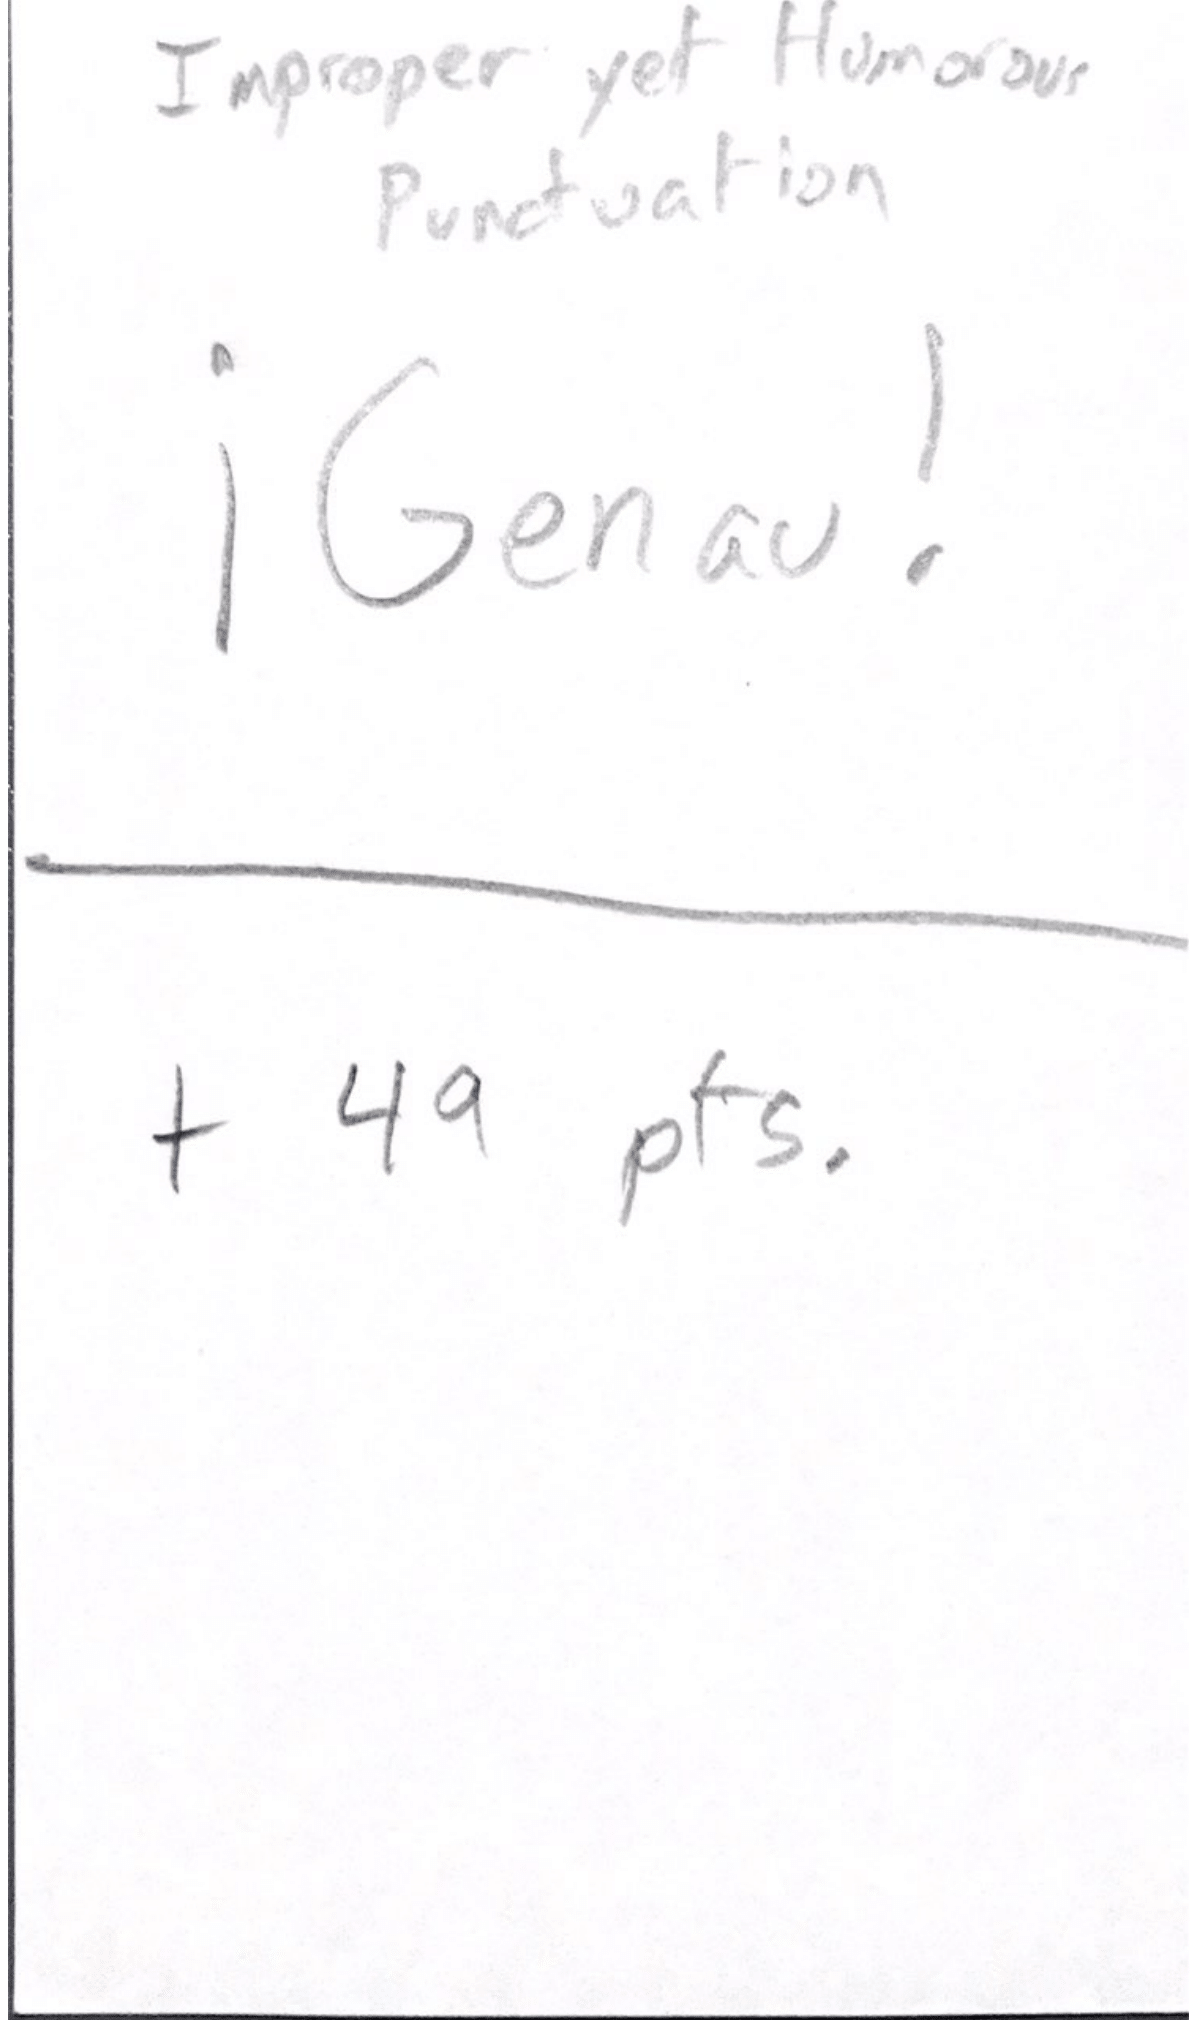 Improper yet Humorous
Punctuation
¡Genau!
+ 49 pts.